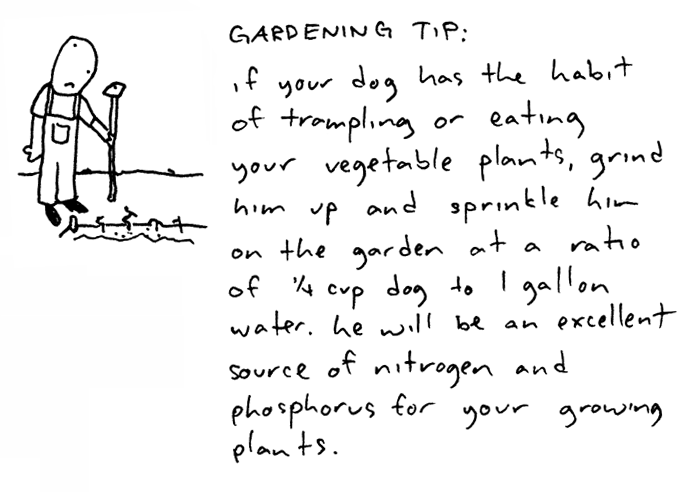 GARDENING TIP:
if your dog has the habit
of trampling or eating
your vegetable plants, grind
him up and sprinkle him
on the garden at a ratio
of 1/4 cup dog to 1 gallon
water. he will be an excellent
source of nitrogen and
phosphorus for your growing
plants.